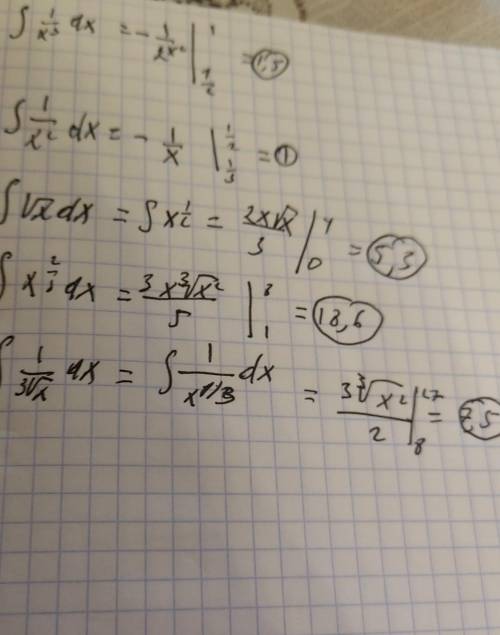 ∫ 1/x³ dx = - 1/2x² |¹_{1/2} = 1,5
∫ 1/x² dx = - 1/x |^{1/2}_{1/3} = 1
∫ √x dx = ∫ x^{1/2} = 2x√x/3 |⁴₀ = 5,3
∫ x^{2/3} dx = 3x∛x²/5 |⁸₁ = 18,6
∫ 1/3√x dx = ∫ 1/x^{1/3} dx = 3∛x²/2 |²⁷₈ = 7,5